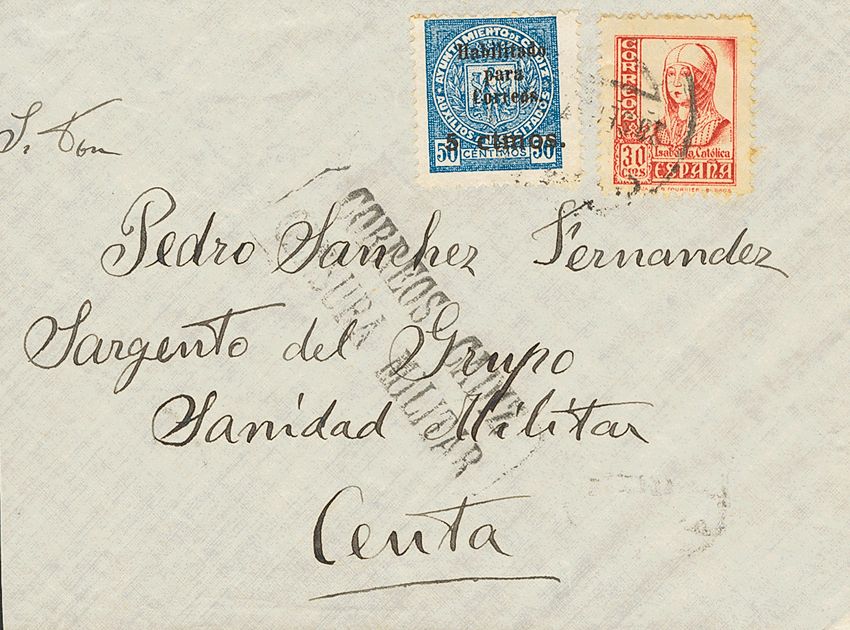 AYUNTAMIENTO DE CADIZ
Habilitado
para
Correos.
AUXILIOS
5 ctmos.
50 CENTIMOS 50
CORREOS
30 CTS
Isabel la Católica
ESPAÑA
S. Don
Pedro Sanchez Fernandez
Sargento del Grupo
Sanidad Militar
Ceuta
CORREOS CADIZ
CENSURA MILITAR